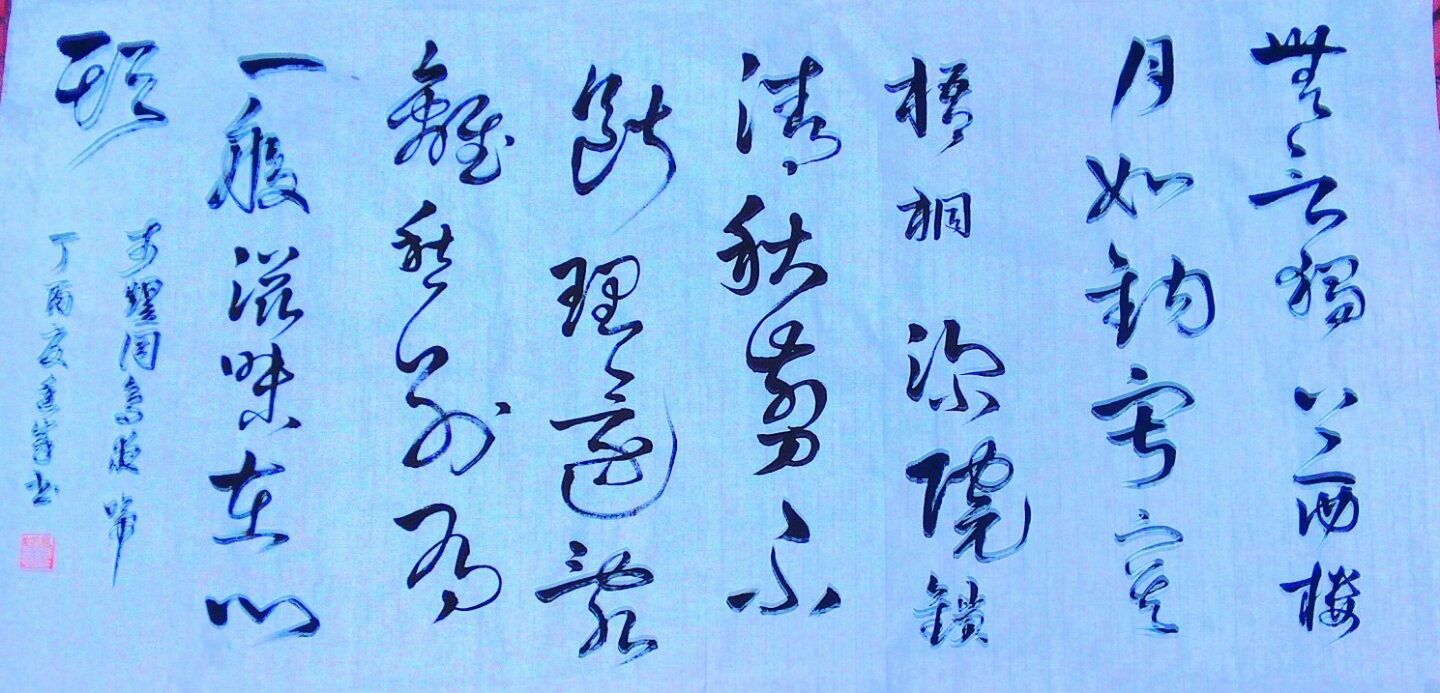 無言獨上西樓
月如鉤寂寞
梧桐深院鎖
清秋剪不
斷理還亂
離愁別
一般滋味在心
頭
李煜詞烏夜啼
丁酉夏峰书